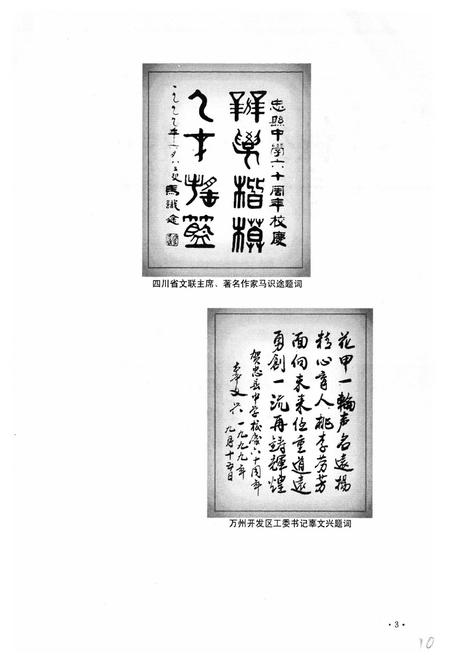 忠县中学六十周年校庆
办学楷模
人才摇篮
一九九九年
馬識途
四川省文联主席、著名作家马识途题词
花甲一輪声名遠揚
精心育人桃李芳芳
面向未来任重道遠
勇創一流再鑄輝煌
贺忠县中学校庆六十周年
辜文兴 一九九九年
九月十五日
万州开发区工委书记辜文兴题词
·3·
10